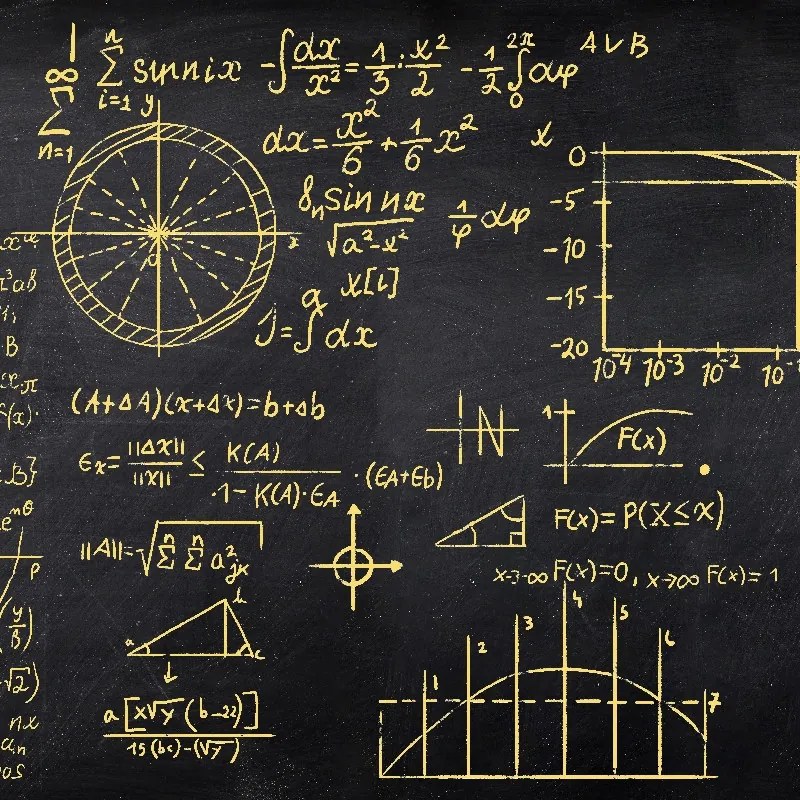 ∞ ∑ n=1
n ∑ i=1 sinnix -∫ dx/x² = 1/3 · x²/2 - 1/2 ∫ 2π 0 dφ
A∨B
y
dx = x²/6 + 1/6 x²
x
8ₙ sin nx / √a²-x²
1/φ dφ
0
-5
-10
-15
-20
10⁻⁴ 10⁻³ 10⁻² 10⁻
x
0
a x[i]
J=∫ dx
x^α
B
x·π
f(x)·
B}
e^nθ
p
(y/B)
√2)
nx
aₙ
os
(A+ΔA)(x+Δx)=b+Δb
ϵx = ||Δx||/||x|| ≤ K(A) / ·1-K(A)·ϵA · (ϵA+ϵb)
||A||=√ n∑ n∑ a²jk
N
1
F(x)
F(x)=P(X≤x)
x→-∞ F(x)=0, x→∞ F(x)=1
a b c
a[x√y (b-22)] / 15(bc)-(√y)
1 2 3 4 5 6 7